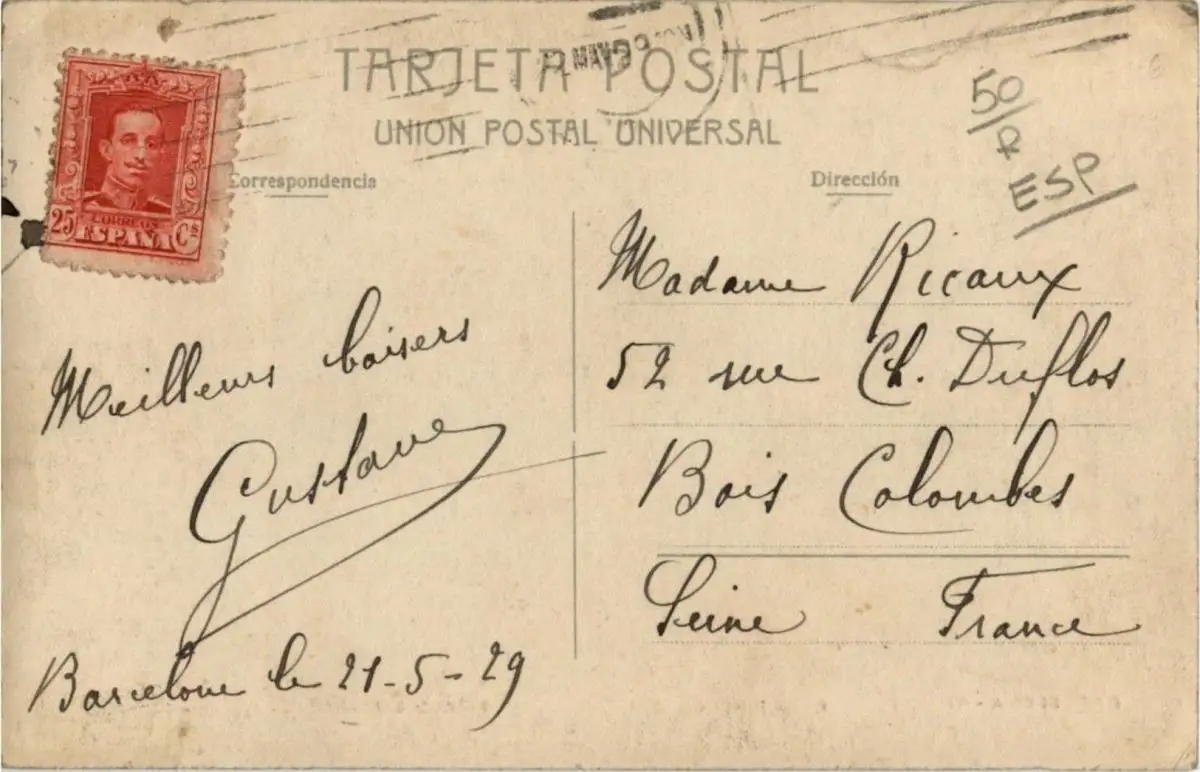 TARJETA POSTAL
UNION POSTAL UNIVERSAL
Correspondencia
Dirección
50/R
ESP
25 CORREOS Cs
ESPAÑA
Meilleurs baisers
Gustave
Barcelone le 21-5-29
Madame Ricaux
52 rue Ch. Duflos
Bois Colombes
Seine France